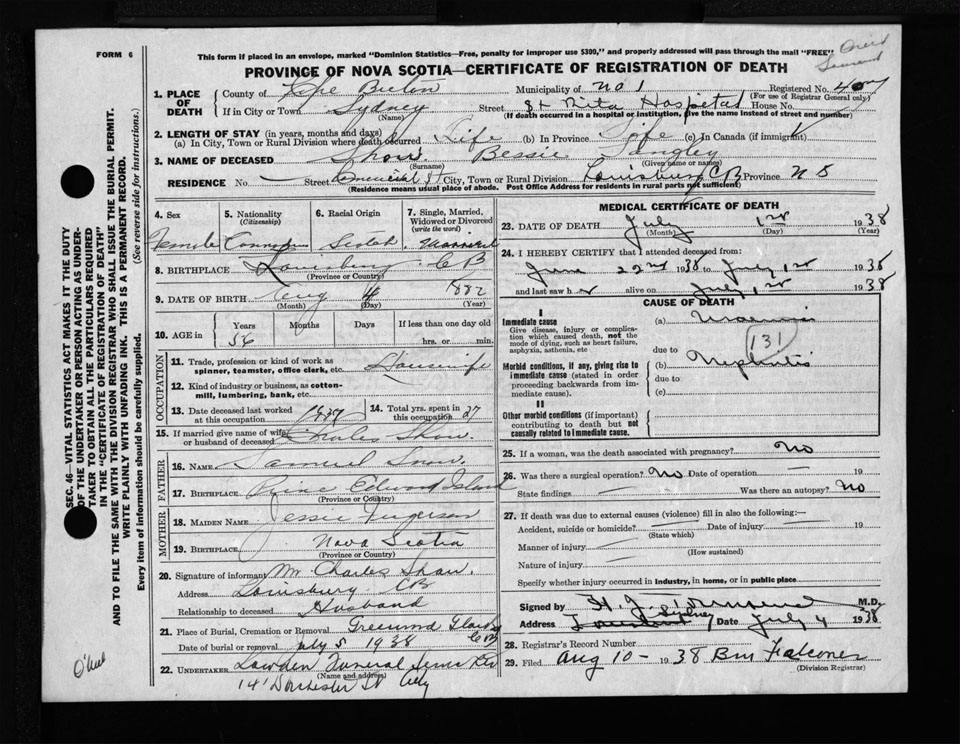 FORM 6
This form if placed in an envelope, marked "Dominion Statistics—Free, penalty for improper use $300," and properly addressed will pass through the mail "FREE"
PROVINCE OF NOVA SCOTIA—CERTIFICATE OF REGISTRATION OF DEATH
1. PLACE OF DEATH
County of Cape Breton Municipality of No 1 Registered No. 407
(For use of Registrar General only)
If in City or Town Sydney Street St Rita Hospital House No.
(Name) (If death occurred in a hospital or institution, give the name instead of street and number)
2. LENGTH OF STAY (in years, months and days)
(a) In City, Town or Rural Division where death occurred Life (b) In Province Life (c) In Canada (if immigrant)
3. NAME OF DECEASED Shaw Bessie Langley
(Surname) (Given name or names)
RESIDENCE No. — Street Commercial St City, Town or Rural Division Louisburg CB Province N S
(Residence means usual place of abode. Post Office Address for residents in rural parts not sufficient)
4. Sex 5. Nationality (Citizenship) 6. Racial Origin 7. Single, Married, Widowed or Divorced (write the word)
Female Canadian Scotch Married
8. BIRTHPLACE Louisburg C B
(Province or Country)
9. DATE OF BIRTH Aug 4 1882
(Month) (Day) (Year)
10. AGE in Years Months Days If less than one day old
56 hrs. or min.
OCCUPATION
11. Trade, profession or kind of work as spinner, teamster, office clerk, etc. Housewife
12. Kind of industry or business, as cotton-mill, lumbering, bank, etc.
13. Date deceased last worked at this occupation 1937 14. Total yrs. spent in this occupation 27
15. If married give name of wife or husband of deceased Charles Shaw
FATHER
16. NAME Samuel Snow
17. BIRTHPLACE Prince Edward Island
(Province or Country)
MOTHER
18. MAIDEN NAME Jessie Fergerson
19. BIRTHPLACE Nova Scotia
(Province or Country)
20. Signature of informant Mr Charles Shaw.
Address Louisburg CB
Relationship to deceased Husband
21. Place of Burial, Cremation or Removal Greenwood
Date of burial or removal July 5 1938
22. UNDERTAKER Lowden Funeral
(Name and address)
141 Dorchester St City
MEDICAL CERTIFICATE OF DEATH
23. DATE OF DEATH July 1st 1938
(Month) (Day) (Year)
24. I HEREBY CERTIFY that I attended deceased from:
June 22nd 1938 to July 1st 1938
and last saw h er alive on July 1st 1938
CAUSE OF DEATH
I
Immediate cause
Give disease, injury or complication which caused death, not the mode of dying, such as heart failure, asphyxia, asthenia, etc
(a) Uraemia
131
due to
Morbid conditions, if any, giving rise to immediate cause (stated in order proceeding backwards from immediate cause).
(b) Nephritis
due to
(c)
II
Other morbid conditions (if important) contributing to death but not causally related to immediate cause.
25. If a woman, was the death associated with pregnancy? No
26. Was there a surgical operation? No Date of operation — 19
State findings — Was there an autopsy? No
27. If death was due to external causes (violence) fill in also the following:—
Accident, suicide or homicide? — Date of injury — 19
(State which)
Manner of injury —
(How sustained)
Nature of injury —
Specify whether injury occurred in industry, in home, or in public place
Signed by M.D.
Address Sydney Date July 4 1938
28. Registrar's Record Number
29. Filed Aug 10 – 1938 Falconer
(Division Registrar)
SEC. 46—VITAL STATISTICS ACT MAKES IT THE DUTY
OF THE UNDERTAKER OR PERSON ACTING AS UNDER-
TAKER TO OBTAIN ALL THE PARTICULARS REQUIRED
IN THE "CERTIFICATE OF REGISTRATION OF DEATH"
AND TO FILE THE SAME WITH THE DIVISION REGISTRAR WHO SHALL ISSUE THE BURIAL PERMIT.
WRITE PLAINLY WITH UNFADING INK. THIS IS A PERMANENT RECORD.
Every item of information should be carefully supplied. (See reverse side for instructions.)